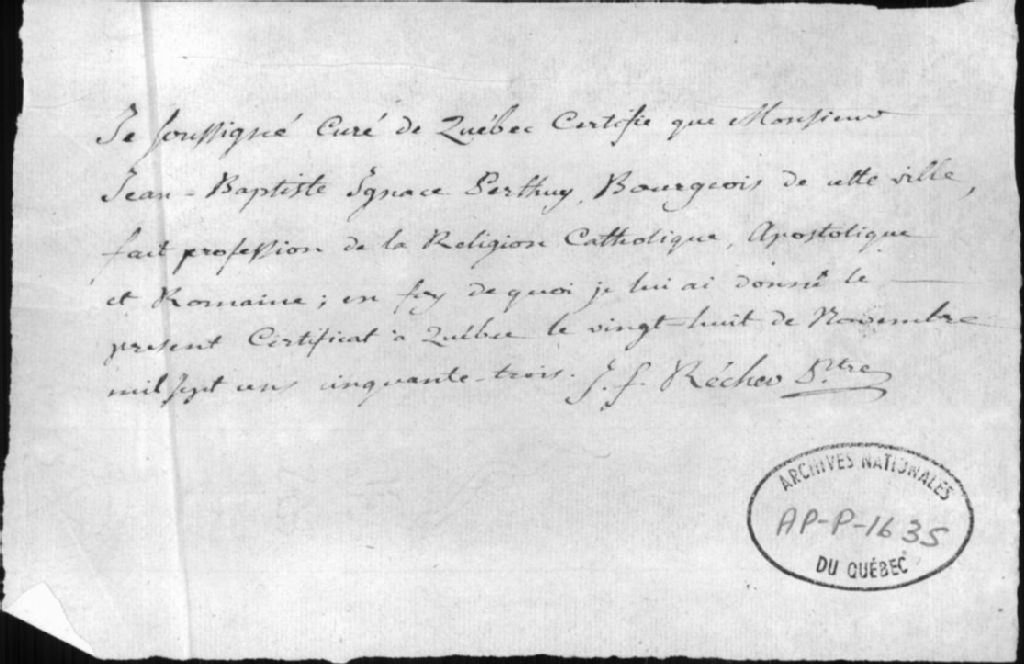 Je soussigné Curé de Québec Certifie que Monsieur
Jean-Baptiste Ignace Perthuy, Bourgeois de cette ville,
fait profession de la Religion Catholique, Apostolique
et Romaine; en foy de quoi je lui ai donné le
present Certificat à Québec le vingt-huit de Novembre
mil sept cens cinquante-trois. J. f. Récher Ptre
ARCHIVES NATIONALES
AP-P-1635
DU QUÉBEC